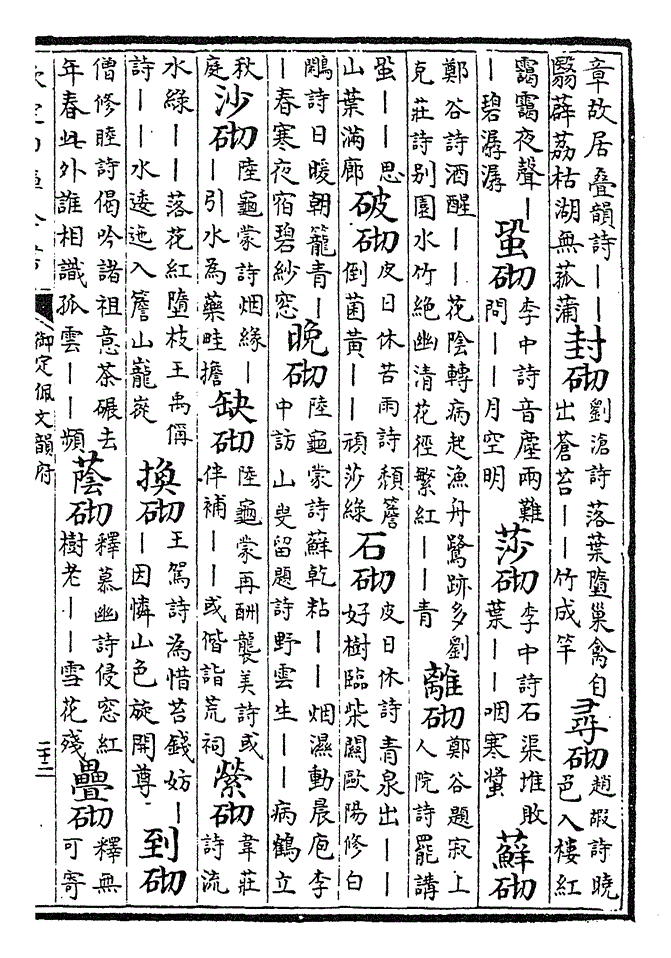 章故居叠韻詩——翳薜荔枯湖無菰蒲封砌劉滄詩落葉墮巢禽自出蒼苔——竹成竿尋砌趙嘏詩曉色入樓紅
靄靄夜聲——碧潺潺蛩砌李中詩音塵兩難問——月空明莎砌李中詩石渠堆敗葉——咽寒螿蘚砌
鄭谷詩酒醒——花陰轉病起漁舟鷺跡多劉克莊詩别園水竹絶幽清花徑繁紅——青離砌鄭谷題寂上人院詩罷講
蛩——思山葉滿廊破砌皮日休苦雨詩頽簷倒菌黄——頑莎緑石砌皮日休詩青泉出——好樹臨柴關歐陽修白
鷴詩日暖朝籠青——春寒夜宿碧紗窓晚砌陸龜蒙詩蘚乾粘——烟濕動晨庖李中訪山叟留題詩野雲生——病鶴立
秋庭沙砌陸龜蒙詩烟緣——引水為藥畦擔缺砌陸龜蒙再酬襲美詩或伴補——或偕詣荒祠縈砌韋莊詩流
水綠——落花紅墮枝王禹偁詩——水逶迤入簷山巃嵸換砌王駕詩為惜苔錢妨——因憐山色旋開尊到砌
僧修睦詩偈吟諸祖意茶碾去年春此外誰相識孤雲——頻蔭砌釋慕幽詩侵窓紅樹老——雪花殘疊砌釋無可寄
御定佩文韻府
二十二